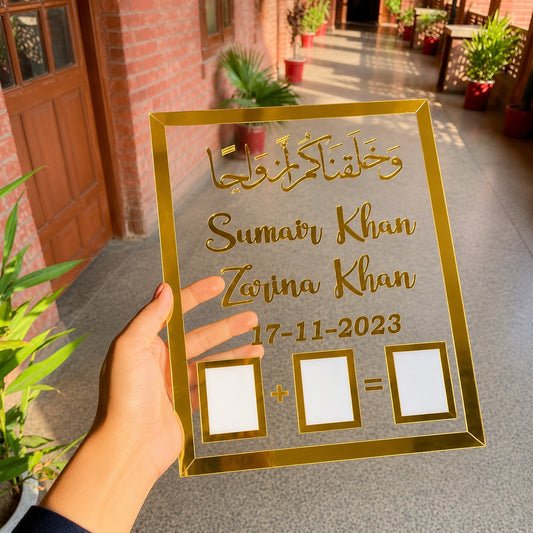 وَخَلَقْنَاكُمْ أَزْوَاجًا
Sumair Khan
Zarina Khan
17-11-2023
+ =